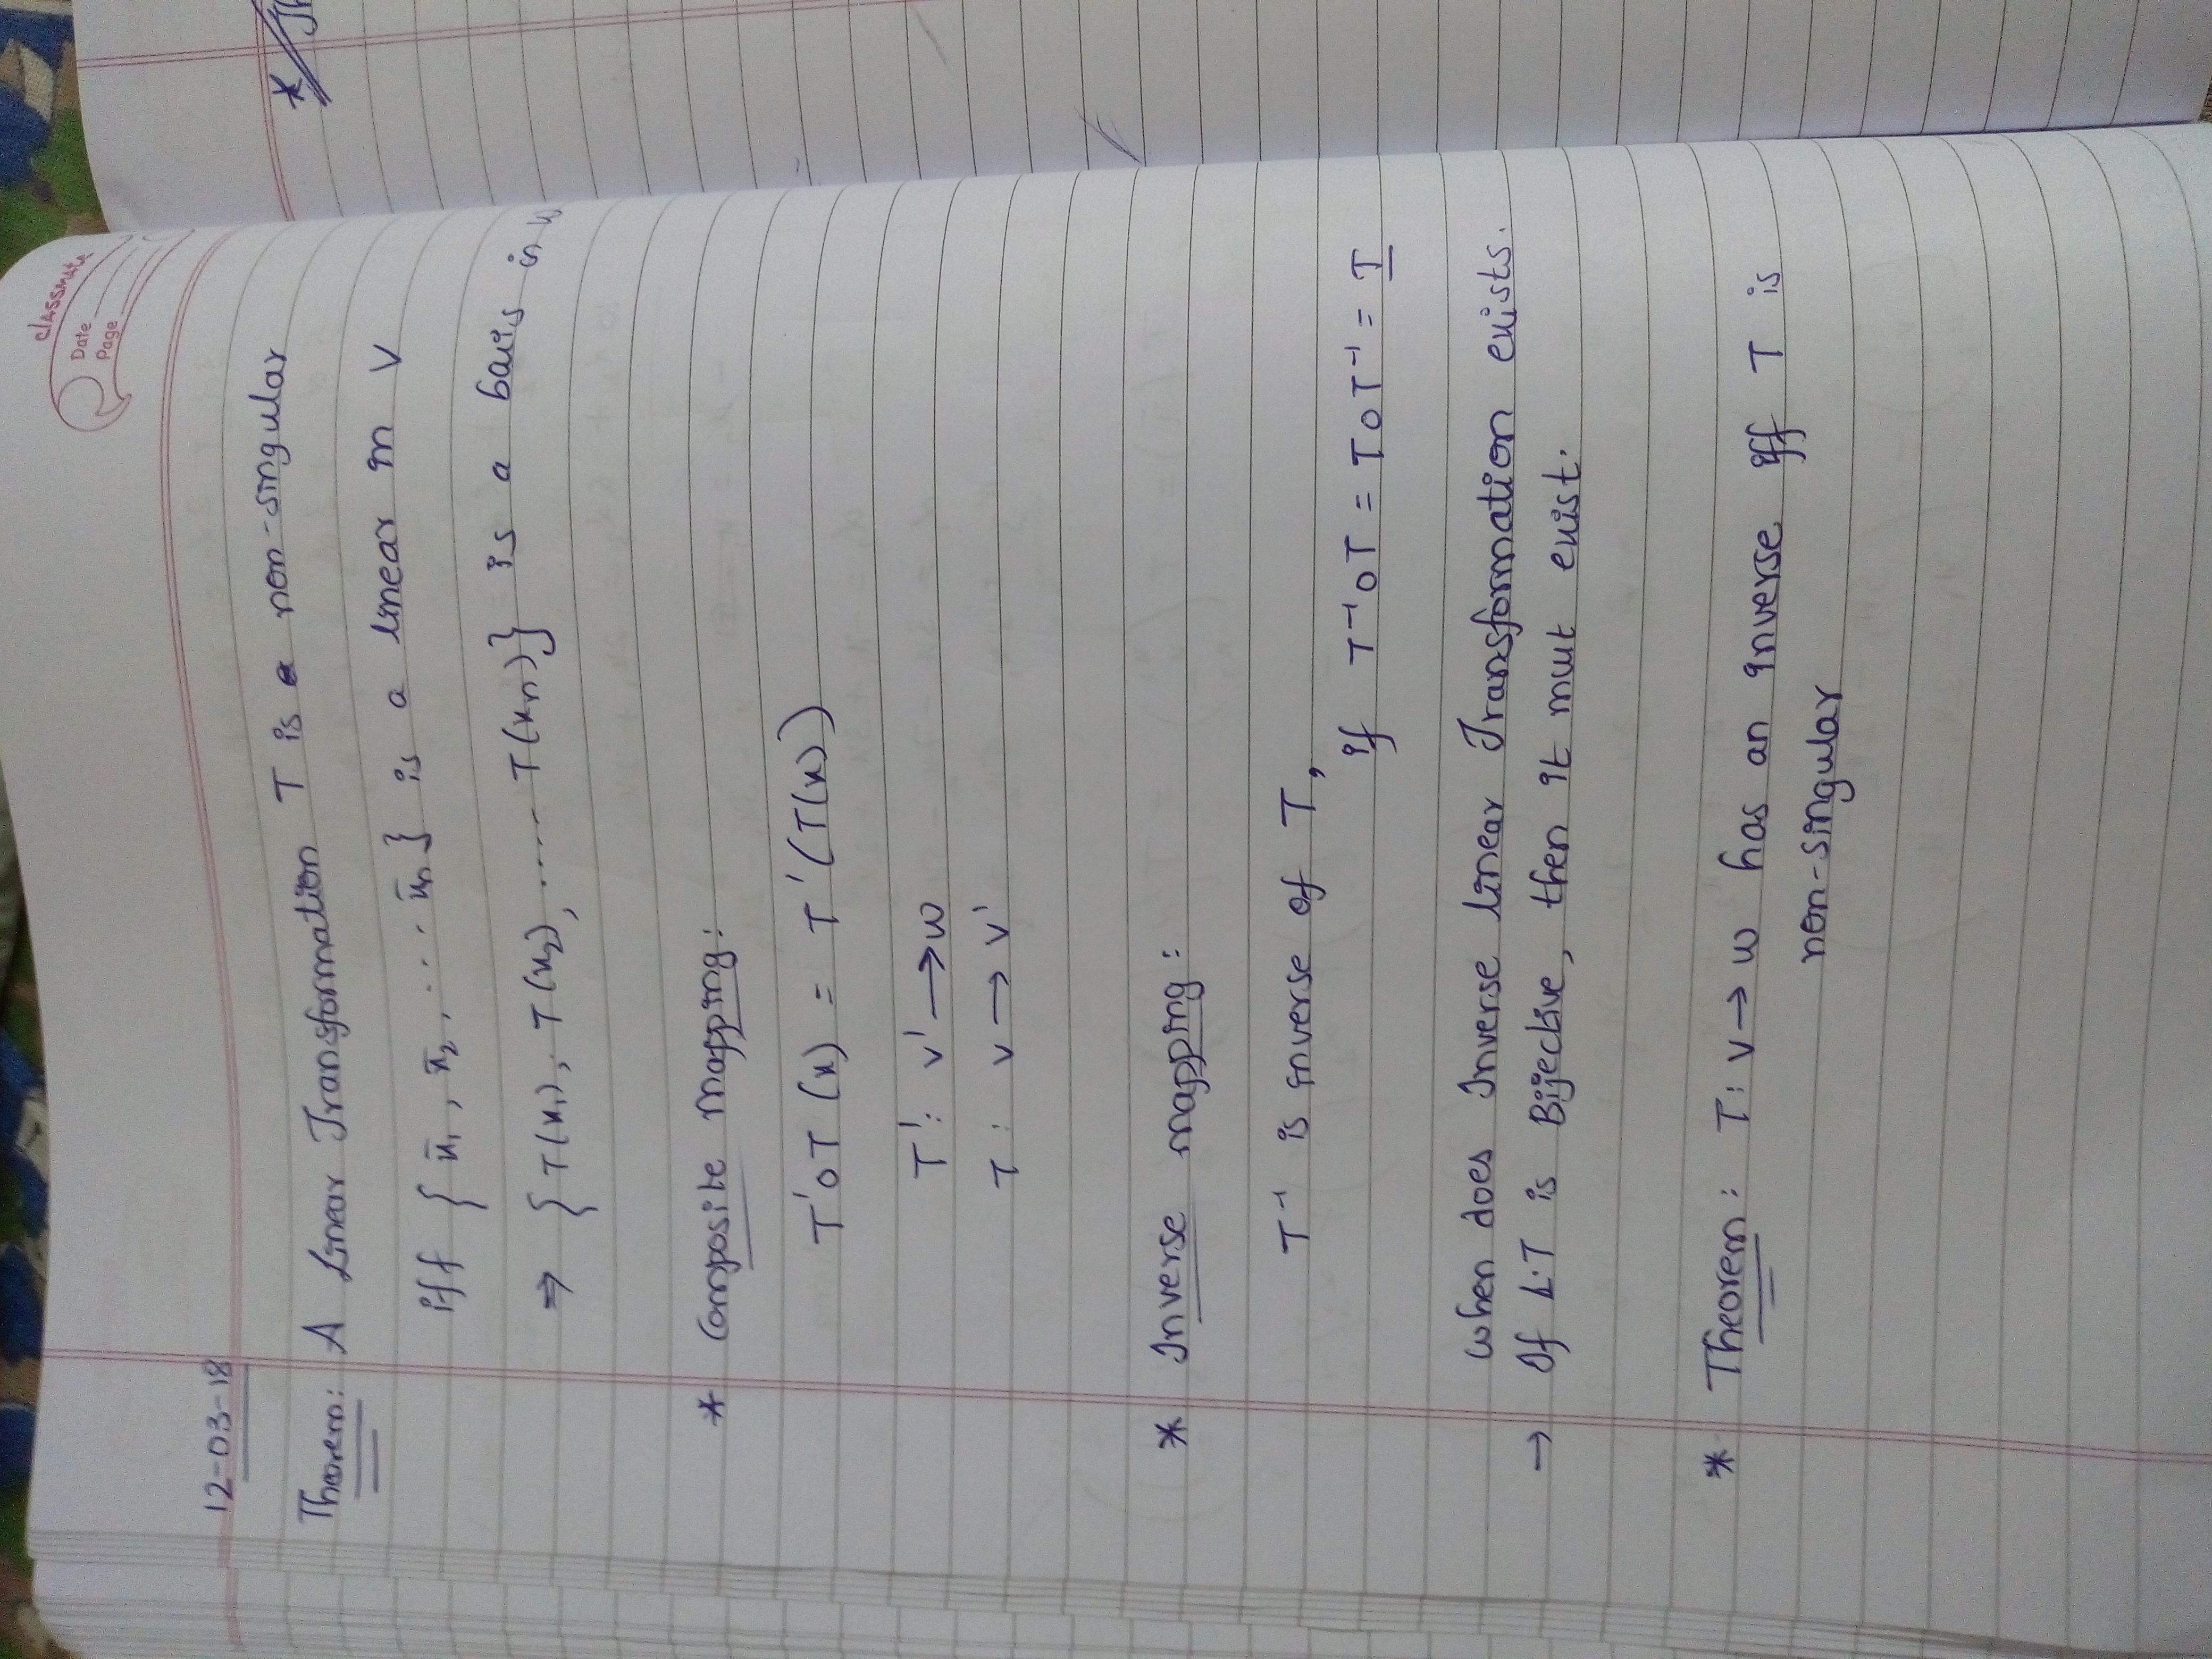 classmate
Date
Page
12-03-18
Theorem: A Linear Transformation T is a non-singular
iff { x̄₁, x̄₂, .... x̄n } is a linear in V
⇒ { T(x₁), T(x₂), ..... T(xn)} is a basis in W
* Composite mapping:
T'oT (x) = T'(T(x))
T': V' → W
T: V → V'
* Inverse mapping:
T⁻¹ is inverse of T,
if T⁻¹oT = ToT⁻¹ = I
When does Inverse linear Transformation exists.
→ If L.T is Bijective, then it must exist.
* Theorem: T: V → W has an inverse iff T is
non-singular
*